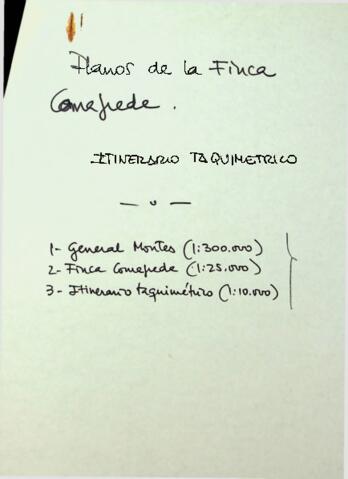 Planos de la Finca
Comapede.
ITINERARIO TAQUIMETRICO
1- General Montes (1:300.000)
2- Finca Comapede (1:25.000)
3- Itinerario taquimétrico (1:10.000)